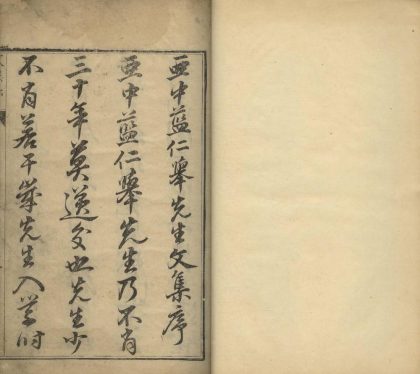 亜中藍仁舉先生文集序
亜中藍仁舉先生乃不肖
三十年莫逆交也先生少
不肖若干歲先生入學时